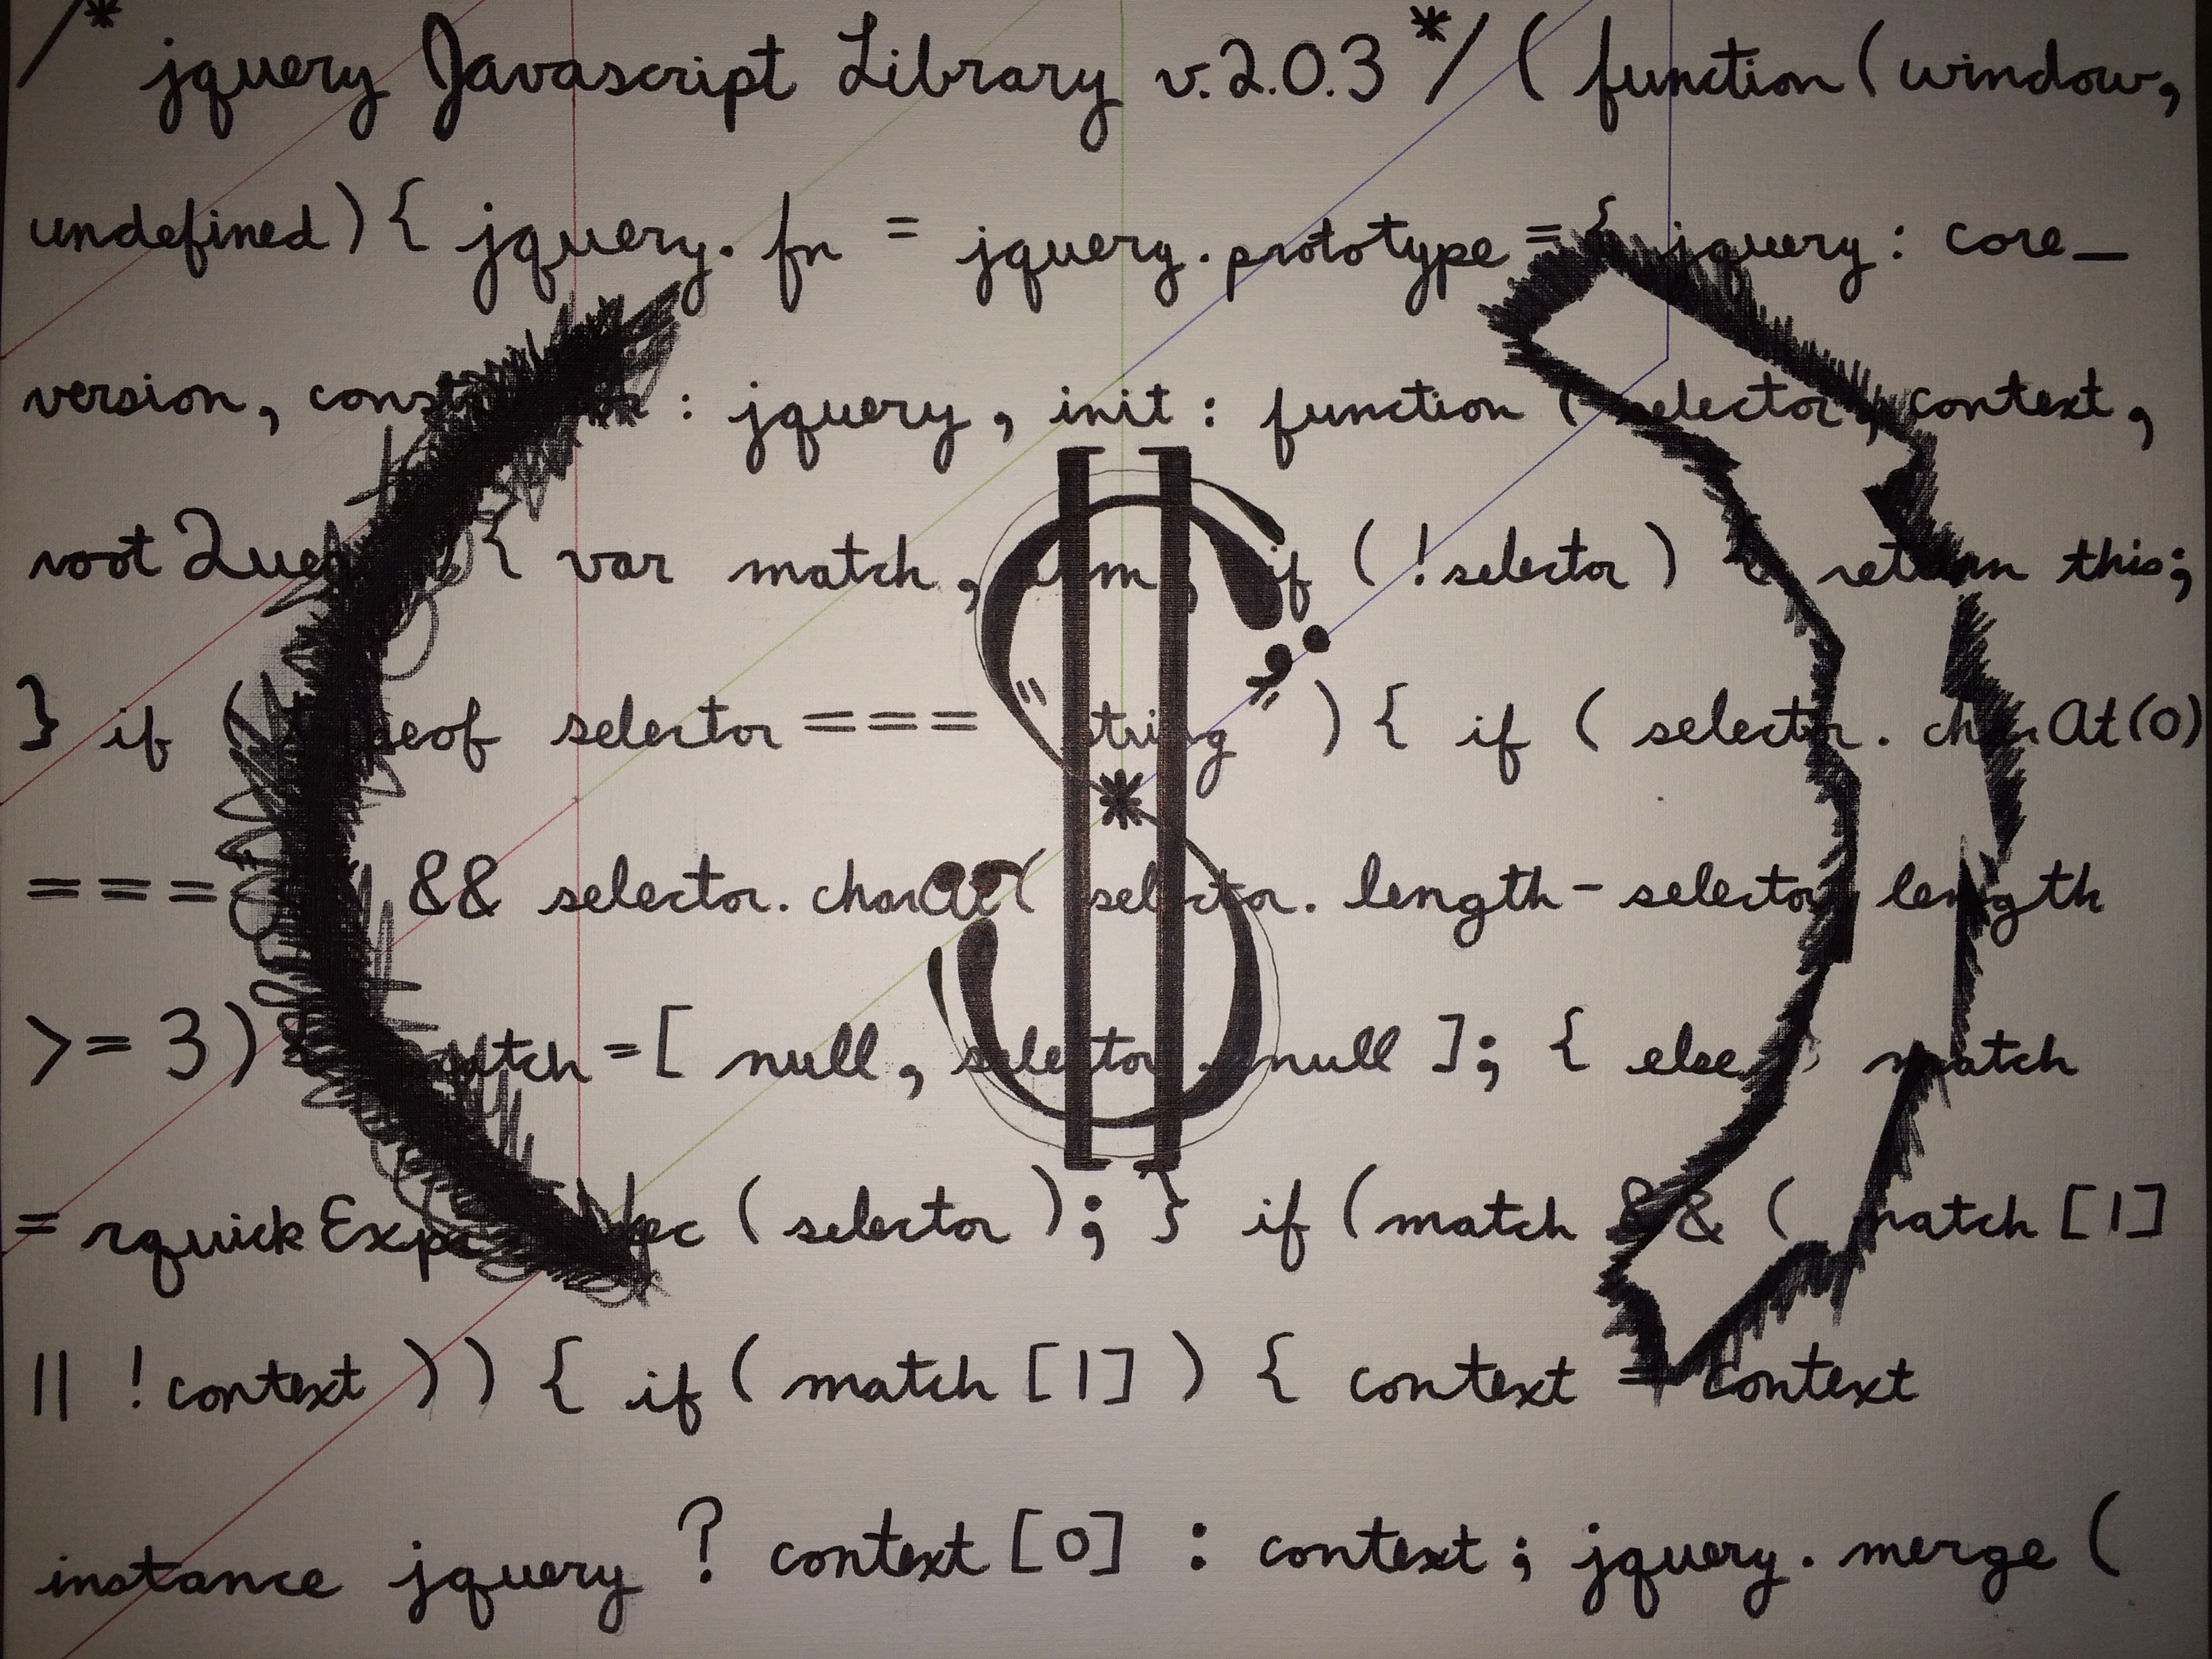 /* jquery Javascript Library v.2.0.3 */ ( function ( window,
undefined ) { jquery. fn = jquery. prototype = { jquery : core_
version, : jquery, init : function ( selector, context,
root { var match, if ( ! selector ) { return this;
} if ( selector === " string " ) { if ( selector. charAt (0)
=== && selector. charAt ( selector. length - selector length
>= 3 ) match = [ null, selector, null ]; { else match
= rquickExpr ( selector ); } if ( match && ( match [1]
|| ! context ) ) { if ( match [1] ) { context = context
instance jquery ? context [0] : context ; jquery. merge (
$